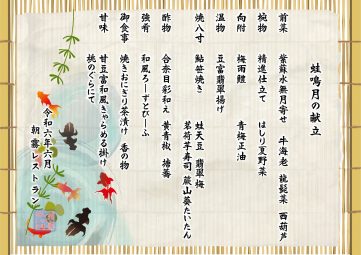 蛙鳴月の献立
前菜 紫蘇水無月寄せ 牛海老 龍髭菜 西葫芦
椀物 精進仕立て はしり夏野菜
向附 梅雨鯉 青梅正油
温物 豆富翡翠揚げ
焼八寸 鮎笹焼き 蛙天豆 翡翠梅
茗荷羊寿司 蕨山葵たいたん
酢物 合奈目彩和え 黄青椒 搪蕎
強肴 和風ろーすとびーふ
御食事 焼きおにぎり茶漬け 香の物
甘味 甘豆富和風きゃらめる掛け
桃のぐらにて
令和六年六月
朝霧レストラン